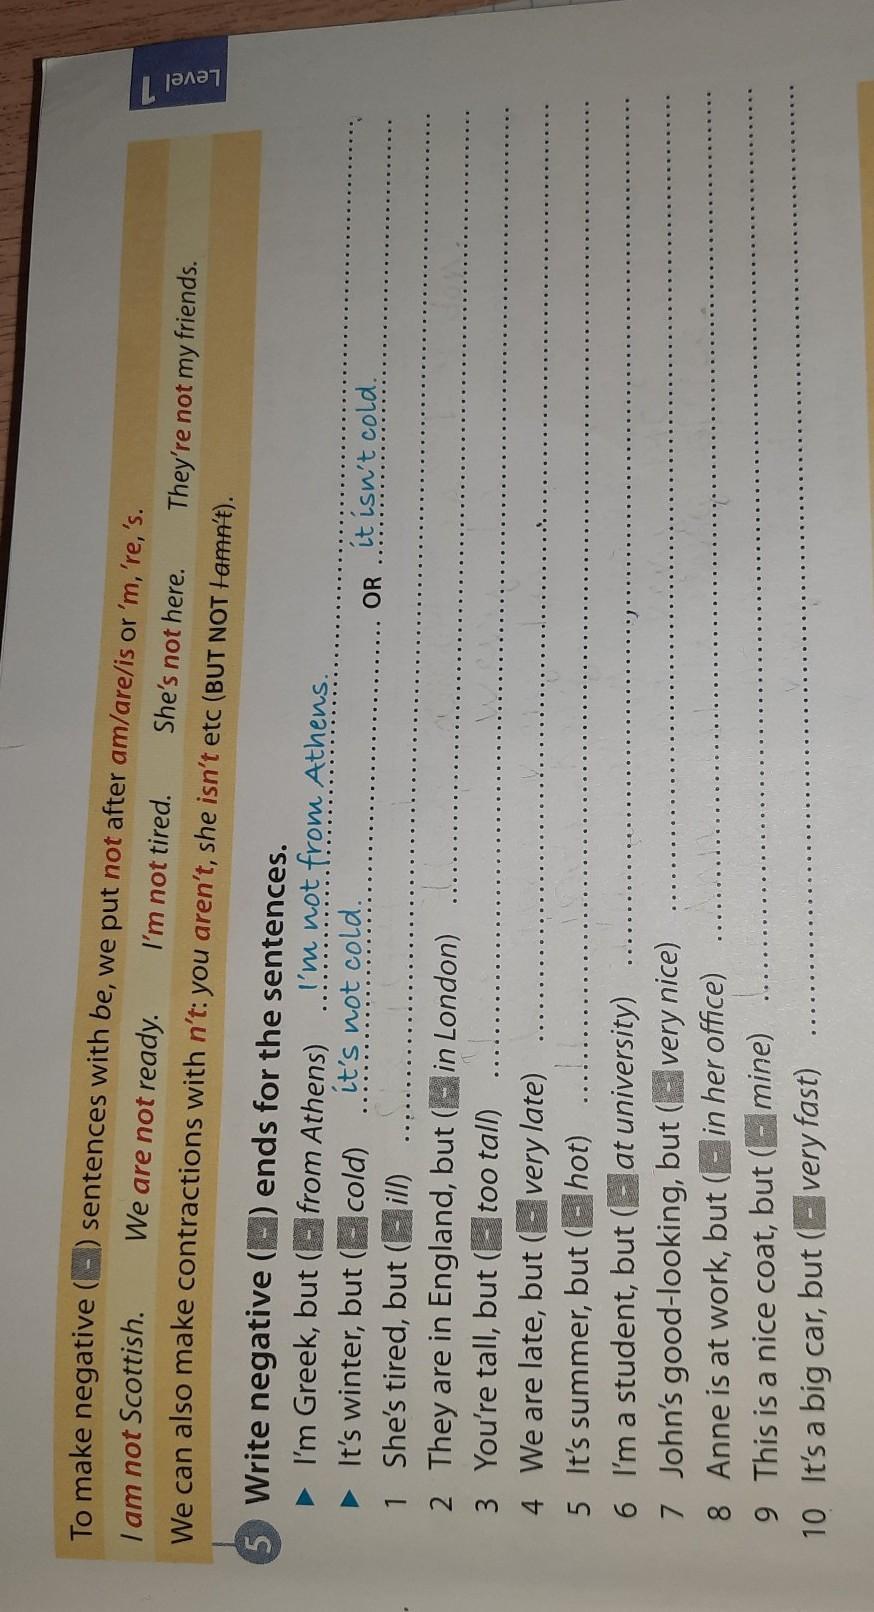 Level 1
To make negative (-) sentences with be, we put not after am/are/is or 'm, 're, 's.
I am not Scottish. We are not ready. I'm not tired. She's not here. They're not my friends.
We can also make contractions with n't: you aren't, she isn't etc (BUT NOT I amn't).
5 Write negative (-) ends for the sentences.
▶ I'm Greek, but (- from Athens) I'm not from Athens.
▶ It's winter, but (- cold) it's not cold. OR it isn't cold.
1 She's tired, but (- ill)
2 They are in England, but (- in London)
3 You're tall, but (- too tall)
4 We are late, but (- very late)
5 It's summer, but (- hot)
6 I'm a student, but (- at university)
7 John's good-looking, but (- very nice)
8 Anne is at work, but (- in her office)
9 This is a nice coat, but (- mine)
10 It's a big car, but (- very fast)